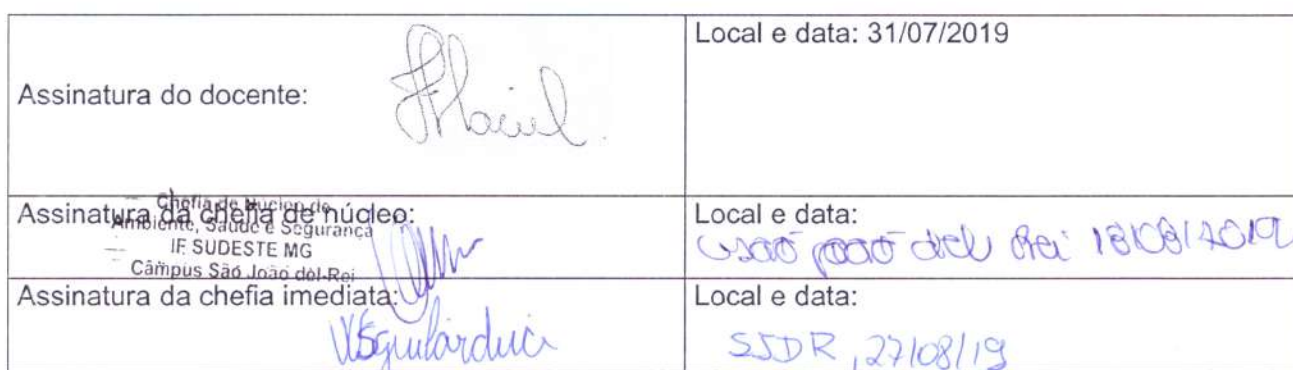 Local e data: 31/07/2019
Assinatura do docente:
Assinatura da chefia de núcleo:
Chefia de Núcleo de
Ambiente, Saúde e Segurança
IF SUDESTE MG
Câmpus São João del-Rei
Local e data:
são joão del Rei 18/08/2019
Assinatura da chefia imediata:
Local e data:
SJDR, 27/08/19